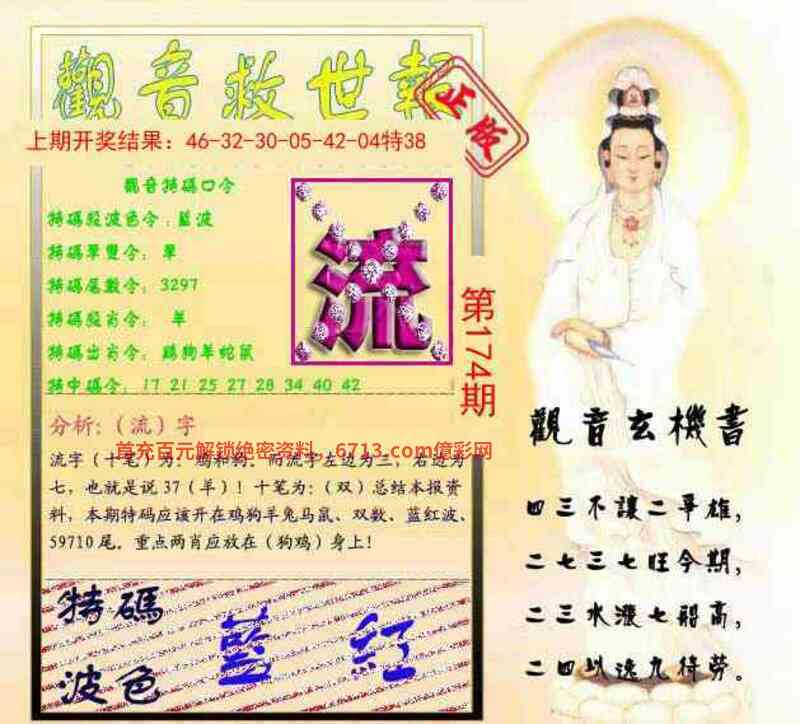 觀音救世報
正版
上期开奖结果：46-32-30-05-42-04特38
觀音特碼口令
特碼段波色令：藍波
特碼單雙令：單
特碼尾數令：3297
特碼段肖令：羊
特碼出肖令：鷄狗羊蛇鼠
特中碼令：17 21 25 27 28 34 40 42
流
第174期
分析：（流）字
首充百元解锁绝密资料，6713.com億彩网
流字（十笔）为：鸡和狗。而流字左边为三，右边为
七，也就是说37（羊）！十笔为：（双）总结本报资
料，本期特码应该开在鸡狗羊兔马鼠、双数、蓝红波、
59710尾。重点两肖应放在（狗鸡）身上！
特碼
波色
藍 紅
觀音玄機書
四三不讓二爭雄，
二七三七旺今期，
二三水漲七韶高，
二四以逸九待勞。